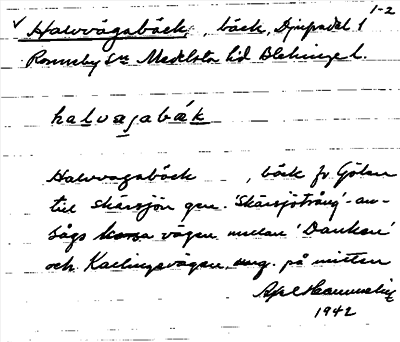 1-2
✓ Halvvägsbäck, bäck, Djupadal 1
Ronneby sn Medelsta hd Blekinge l.
halvagabák
Halvvägsbäck, bäck fr. Göljen
till Skärsjön gm. 'Skärsjötrång' an-
sågs korsa vägen mellan 'Dankan'
och Kallingevägen, ung. på mitten
Axel Hammelin
1942